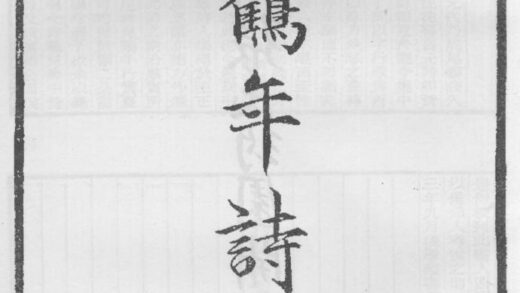 鶴年詩